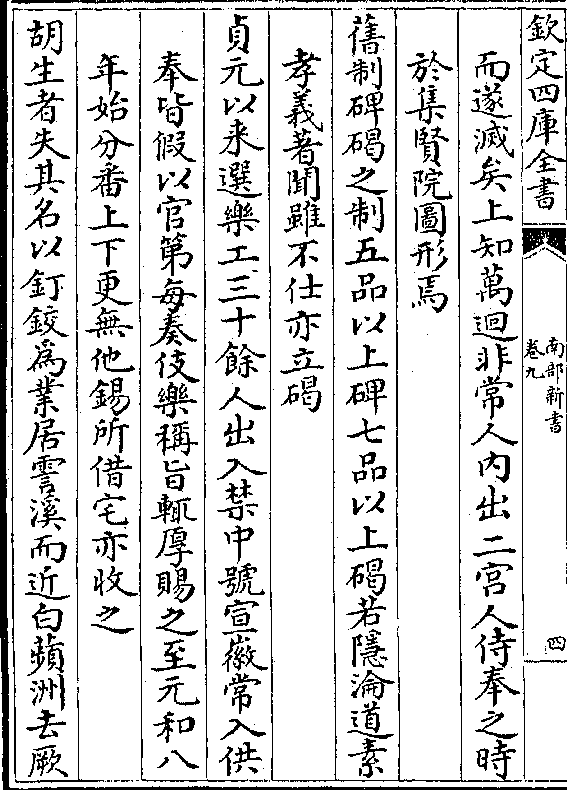 欽定四庫全書
南部新書
卷九
四
而遂滅矣上知萬迴非常人内出二宫人侍奉之時
於集賢院圖形焉
舊制碑碣之制五品以上碑七品以上碣若隱淪道素
孝義著聞雖不仕亦立碣
貞元以来選樂工三十餘人出入禁中號宣徽常入供
奉皆假以官第每奏伎樂稱旨輒厚賜之至元和八
年始分番上下更無他錫所借宅亦收之
胡生者失其名以釘鉸為業居霅溪而近白蘋洲去厥